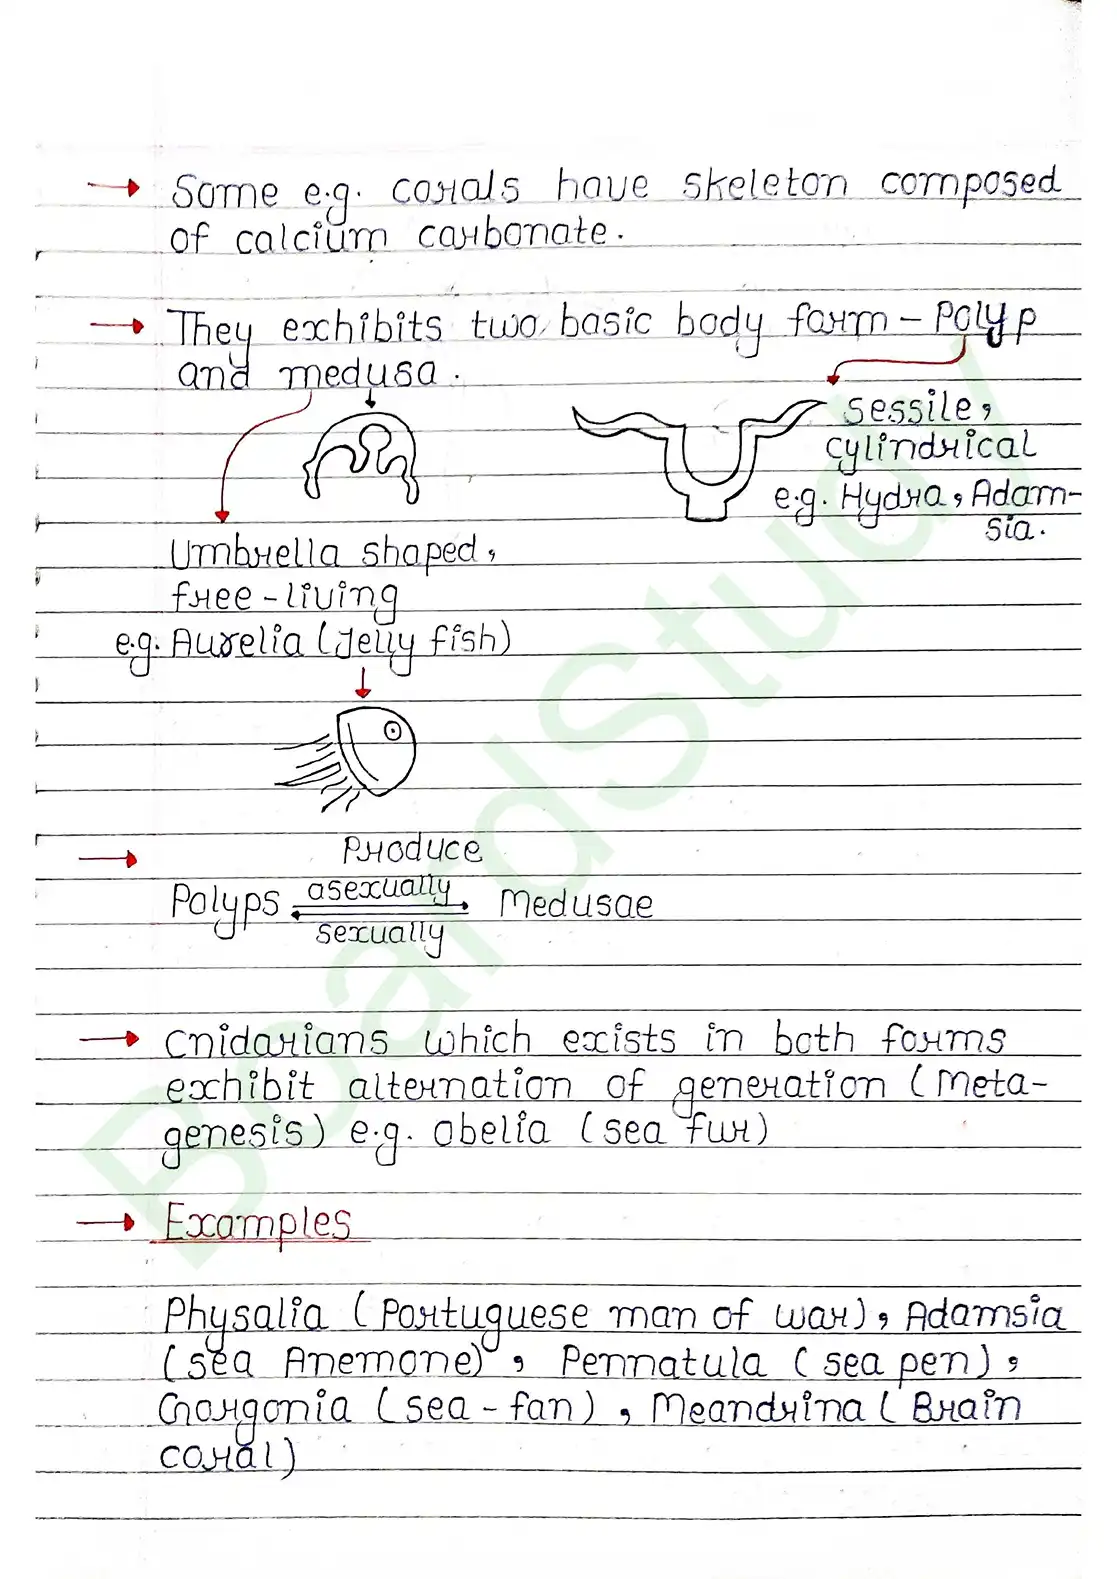 → Some e.g. corals have skeleton composed
of calcium carbonate.
→ They exhibits two basic body form - Polyp
and medusa.
sessile,
cylindrical
e.g. Hydra, Adam-
sia.
Umbrella shaped,
free-living
e.g. Aurelia (Jelly fish)
→ Produce
Polyps asexually Medusae
sexually
→ Cnidarians which exists in both forms
exhibit alternation of generation (Meta-
genesis) e.g. obelia (sea fur)
→ Examples
Physalia (Portuguese man of war), Adamsia
(sea Anemone), Pennatula (sea pen),
Gorgonia (sea-fan), Meandrina (Brain
coral)
BoardStudy